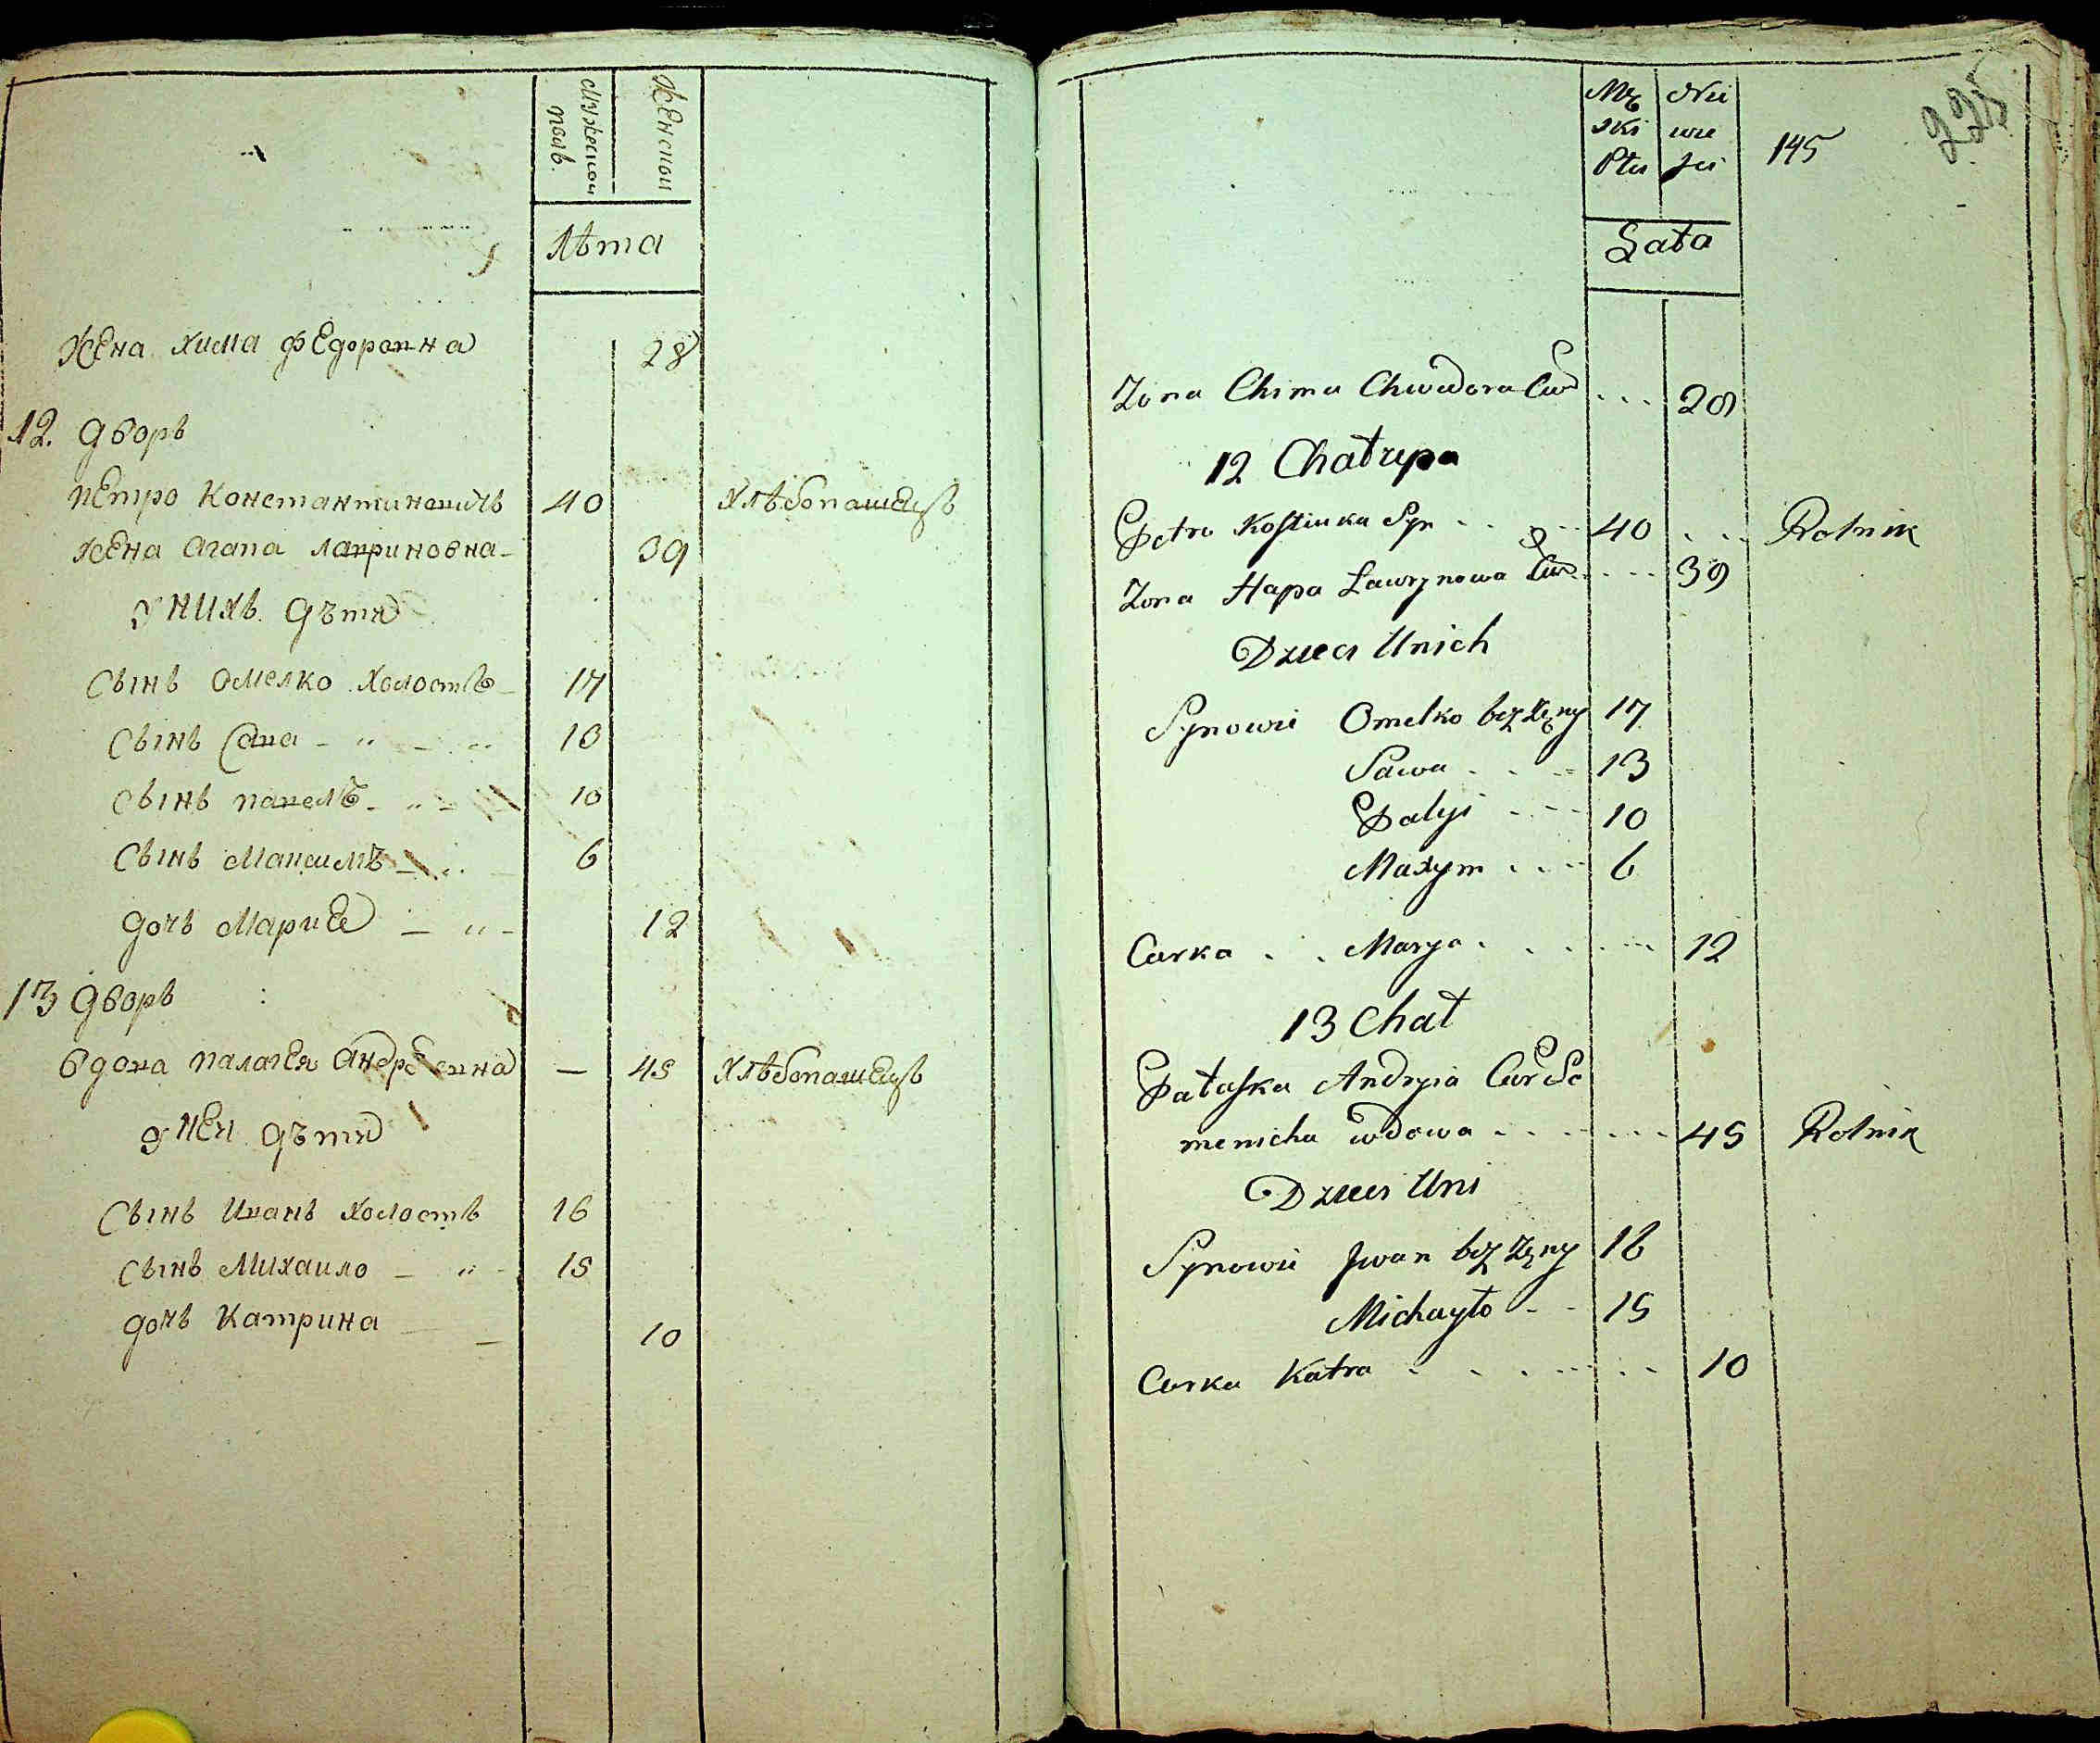 Мужескои
полъ.
Женскои
Лѣта
Жена Хима Федоровна 28
12. дворъ
Петро Константиновичъ 40 Хлѣбопашецъ
Жена Агапа Лавриновна 39
У нихъ дѣти
Сынъ Омелко холостъ 17
Сынъ Сава - " - " 13
Сынъ Павелъ - " - 10
Сынъ Максимъ - " - 6
дочь Мария - " - 12
13 дворъ
Вдова Палагея Андрѣевна — 45 Хлѣбопашецъ
У неи дѣти
Сынъ Иванъ холостъ 16
Сынъ Михаило - " - 15
дочь Катрина - 10
Mę
ski
Płci
Nie
wie
Jci
145
225
Lata
Zona Chima Chwedora Cur ... 28
12 Chałupa
Petro Kostiuka Syn ... 40 ... Rolnik
Zona Hapa Ławrynowa Cur ... 39
Dzieci Unich
Synowie Omelko bez żeny 17
Sawa ... 13
Palyi ... 10
Maxym ... 6
Curka .. Marya ... 12
13 Chał
Pałaska Andryia Cur Se
menicha wdowa ... 45 Rolnik
Dzieci Uni
Synowie Jwan bez żeny 16
Michayło - - 15
Curka Katra ... 10